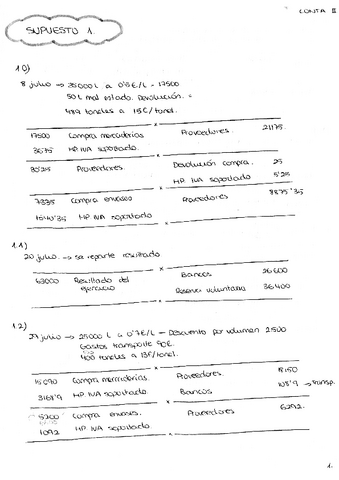 CONTA II
SUPUESTO 1.
10)
8 julio → 35000 L a 0'5€/L = 17500
50 L mal estado. Devolución. =
489 toneles a 15€/tonel.
17500 Compra mercaderías x Proveedores. 21175.
3675 HP IVA soportado
30'25 Proveedores. x Devolución compra. 25
HP IVA soportado 5'25
7335 compra envases x Proveedores 8875'35
1540'35 HP IVA soportado
11)
20 julio → se reparte resultado
63000 Resultado del ejercicio x Bancos 26600
Reserva voluntaria 36400
12)
27 julio → 25000 L a 0'7€/L – Descuento por volumen 2500
Gastos transporte 90€.
400 toneles a 13€/tonel.
15090 Compra mercaderías x Proveedores. 18150
3168'9 HP IVA soportado Bancos 108'9 → transp.
5200 Compra envases. x Proveedores 6292.
1092 HP IVA soportado
1.